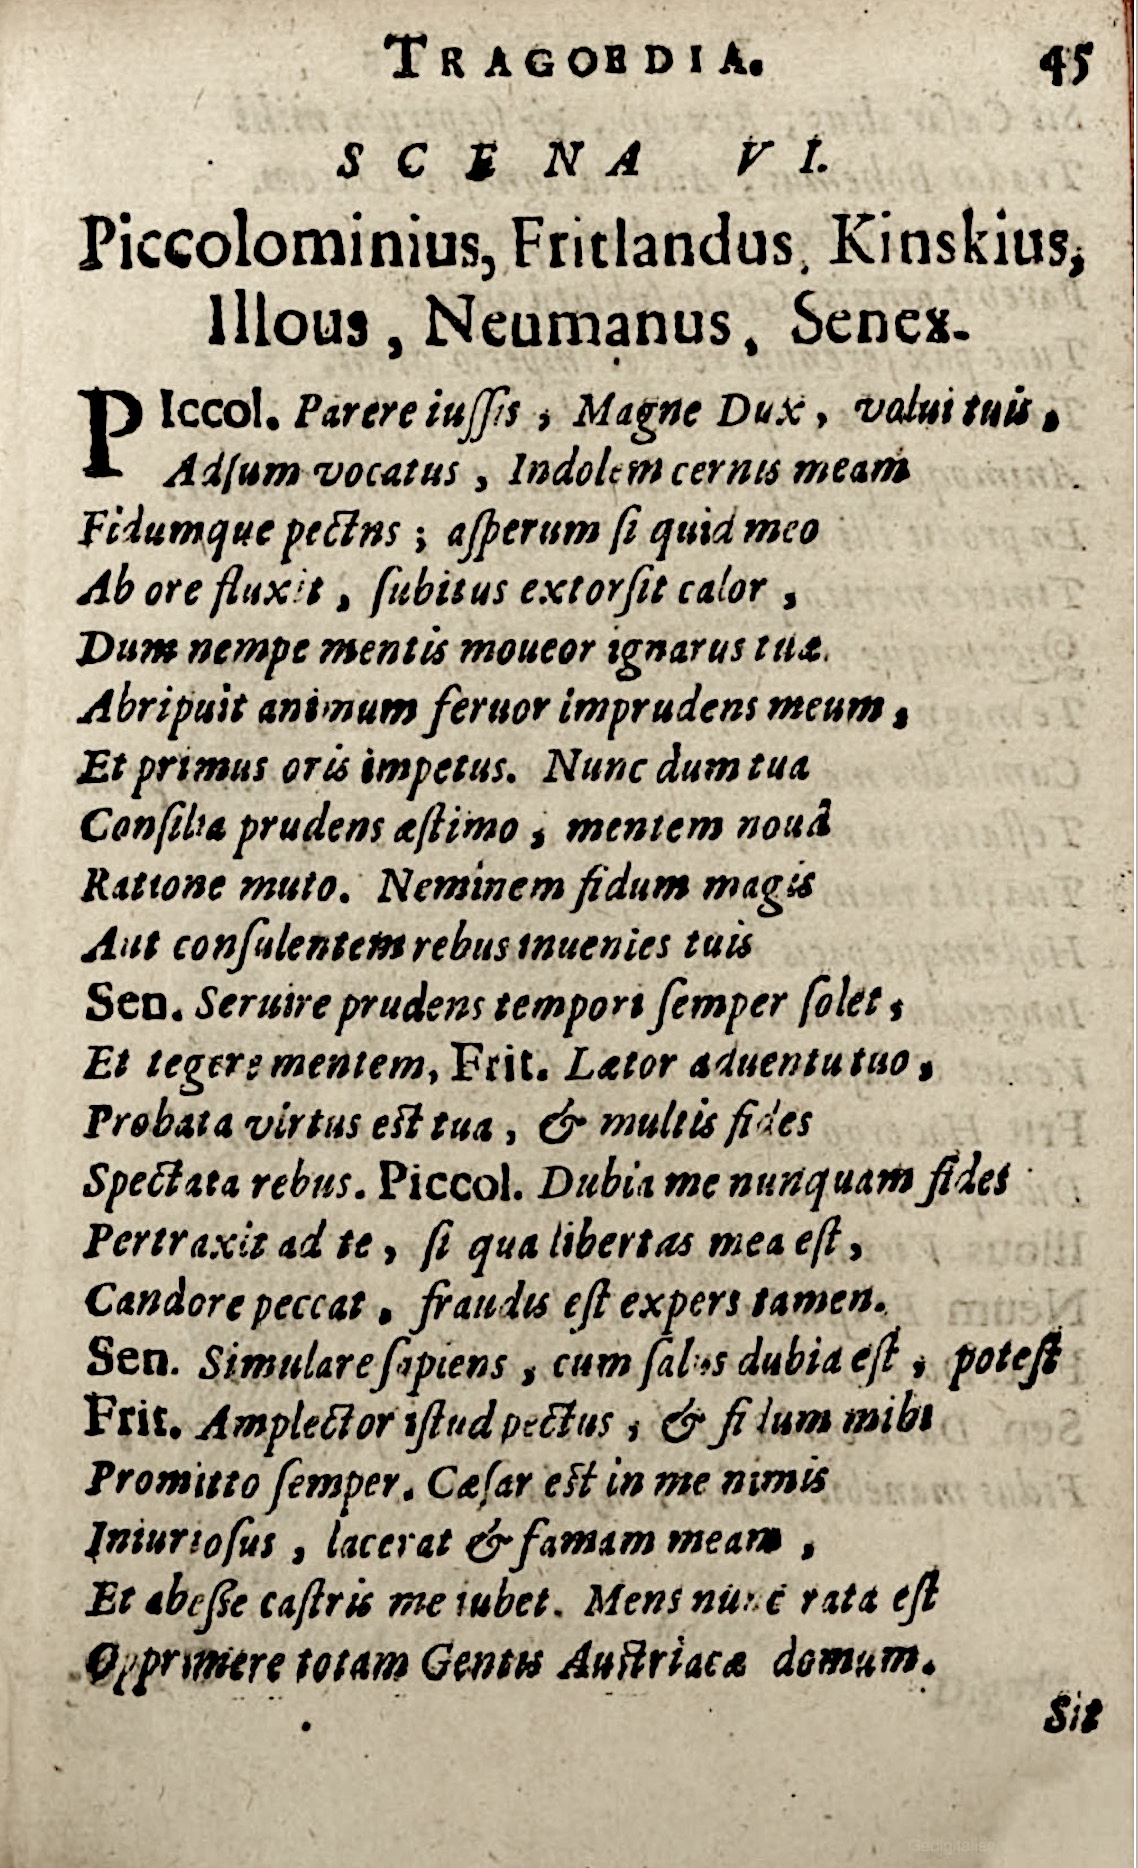 TRAGOEDIA. 45
SCENA VI.
Piccolominius, Fritlandus, Kinskius,
Illous, Neumanus, Senex.
PIccol. Parere iuſſis, Magne Dux, volui tuis,
Adſum vocatus, Indolem cernis meam
Fidumque pectns; aſperum ſi quid meo
Ab ore fluxit, ſubitus extorſit calor,
Dum nempe mentis moueor ignarus tuæ.
Abripuit animum feruor imprudens meum,
Et primus oris impetus. Nunc dum tua
Conſilia prudens æſtimo, mentem nouâ
Ratione muto. Neminem fidum magis
Aut conſulentem rebus inuenies tuis
Sen. Seruire prudens tempori ſemper ſolet,
Et tegere mentem, Frit. Lætor aduentu tuo,
Probata virtus eſt tua, & multis fides
Spectata rebus. Piccol. Dubia me nunquam fides
Pertraxit ad te, ſi qua libertas mea eſt,
Candore peccat, fraudis eſt expers tamen.
Sen. Simulare ſapiens, cum ſalus dubia eſt, poteſt
Frit. Amplector iſtud pectus, & fidum mihi
Promitto ſemper. Cæſar eſt in me nimis
Iniurioſus, lacerat & famam meam,
Et abeſſe caſtris me iubet. Mens nunc rata eſt
Opprimere totam Gentis Auſtriacæ domum.
Sit